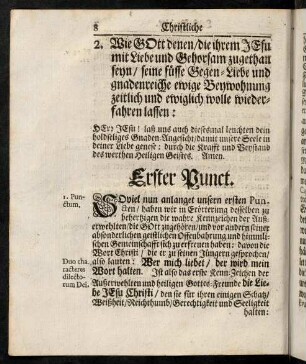 8 Christliche
2. Wie GOtt denen/die ihrem JEsu
mit Liebe und Gehorsam zugethan
seyn/ seine süsse Gegen-Liebe und
gnadenreiche ewige Beywohnung
zeitlich und ewiglich wolle wieder-
fahren lassen:
HErr JEsu! laß uns auch dieses mal leuchten dein
holdseliges Gnaden-Angesicht/damit unsere Seele in
deiner Liebe genese: durch die Krafft und Beystand
des werthen Heiligen Geistes. Amen.
Erster Punct.
1. Pun-
ctum.
SOviel nun anlanget unsern ersten Pun-
cten/ haben wir in Erörterung desselben zu
behertzigen die wahre Kennzeichen der Auß-
erwehlten/die GOtt zugehören/und vor andern seiner
absonderlichen geistlichen Offenbahrung und himmli-
schen Gemeinschafft sich zu erfreuen haben: davon die
Wort Christi / die er zu seinen Jüngern gesprochen/
Duo cha-
racteres
dilecto-
rum Dei.
also lauten: Wer mich liebet/ der wird mein
Wort halten. Ist also das erste Kenn-Zeichen der
Außerwehlten und heiligen Gottes-Freunde die Lie-
be JEsu Christi/ den sie für ihren einigen Schatz/
Weißheit/Reichthumb/Gerechtigkeit und Seeligkeit
halten: